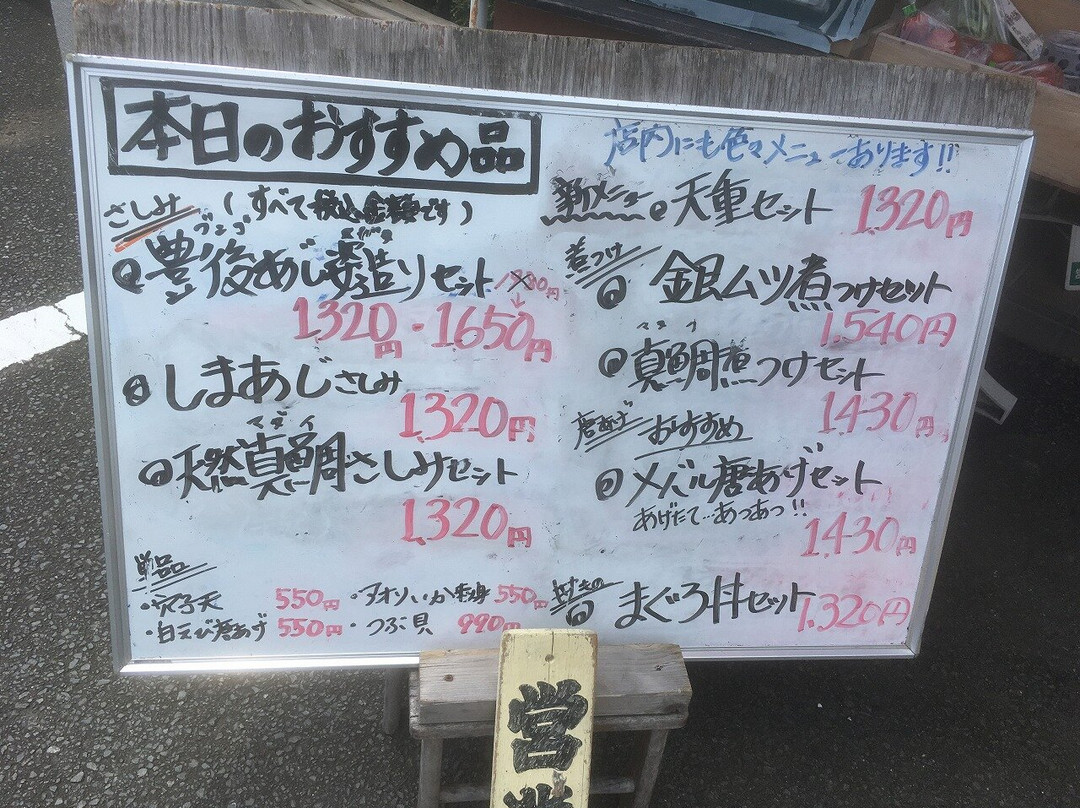 本日のおすすめ品
さしみ (すべて税込金額です)
ブンゴ
豊後あじ姿造りセット
1320円・1650円
しまあじさしみ
1,320円
マダイ
天然真鯛さしみセット
1,320円
単品
・穴子天 550円
・アオリいか刺身 550円
・白えび唐あげ 550円
・つぶ貝 990円
店内にも色々メニューあります!!
新メニュー
天重セット 1,320円
煮つけ
金銀ムツ煮つけセット
1,540円
マダイ
真鯛煮つけセット
1430円
唐あげ おすすめ
メバル唐あげセット
あげたて…あつあつ!!
1430円
まぐろ丼セット 1,320円
営業